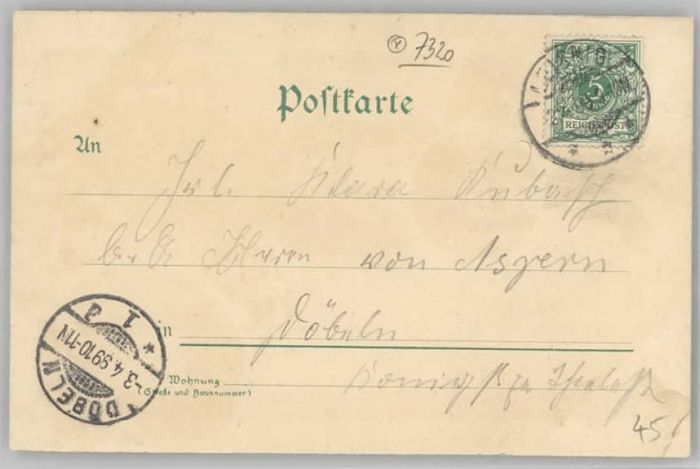 7320
Postkarte
5
REICHSPOST
An
Frl. Klara Kubasch
b. d. Herrn von Aspern
in
Döbeln
DÖBELN
-3.4.99.10-11N.
* 1 a
Wohnung
(Straße und Hausnummer)
45